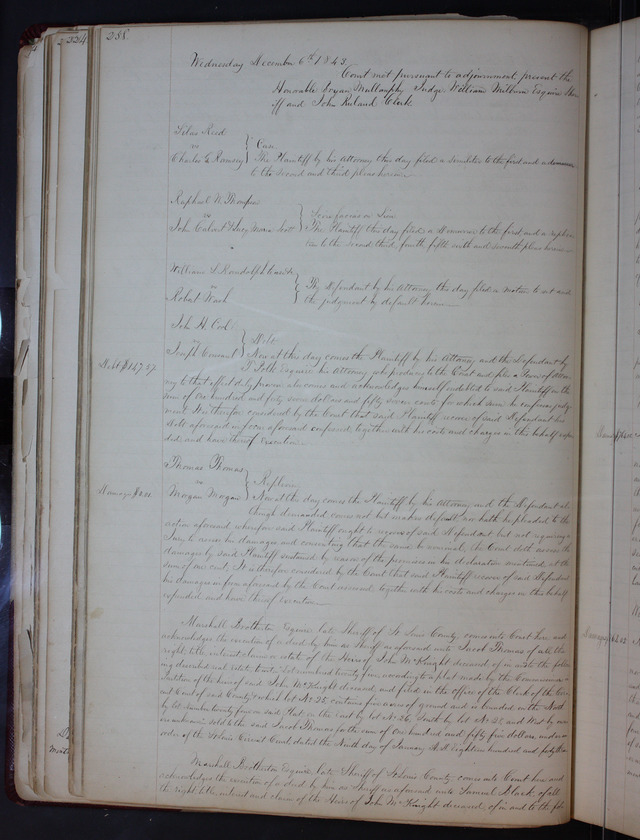 258.
Wednesday December 6th 1843.
Court met pursuant to adjournment, present the
Honorable Bryan Mullanphy Judge William Milburn Esquire Sher
iff and John Ruland Clerk
Silas Reed
vs
Charles G. Ramsey
Case
The Plaintiff by his Attorney this day filed a similiter to the first and a demurrer
to the second and third pleas herein
Raphael W.
vs
John Calvert & Mary
Scire facias on Lien
The Plaintiff this day filed a Demurrer to the first, and a replica
tion to the second third, fourth fifth sixth and seventh pleas herein
William S. Randolph
vs
Robert Wash
The Defendant by his Attorney this day filed a motion to set aside
the judgment by default herein
John H. Cook
vs
Joseph Conrad
Debt
Debt $147.57
Now at this day comes the Plaintiff by his Attorney and the Defendant by
T. Polk Esquire his Attorney who produces to the Court and files a Power of Attor
ney to that effect duly proven also comes and acknowledges himself indebted to said Plaintiff in the
sum of one hundred and forty seven dollars and fifty seven cents for which sum he confesses judg
ment. It is therefore considered by the Court that said Plaintiff recover of said Defendant his
debt aforesaid in form aforesaid confessed together with his costs and charges in this behalf expen
ded and have thereof execution
Thomas Thomas
vs
Morgan Morgan
Replevin
Damages
Now at this day comes the Plaintiff by his Attorney and the Defendant al
though demanded comes not but makes default, nor hath he plead to the
action aforesaid wherefore said Plaintiff ought to recover of said Defendant but not requiring a
Jury to assess his damages and consenting that the same be nominal, the Court doth assess the
damages by said Plaintiff sustained by reason of the premises in his declaration mentioned at the
sum of one cent, It is therefore considered by the Court that said Plaintiff recover of said Defendant
his damages in form aforesaid by the Court assessed together with his costs and charges in this behalf
expended and have thereof execution
Marshall Brotherton Esquire late Sheriff of St Louis County comes into Court here and
acknowledges the execution of a deed by him as Sheriff as aforesaid unto Jacob Thomas of all the
right, title, interest claim or estate of the Heirs of John McKnight deceased, of in and to the follow
ing described real estate to wit: Lot numbered twenty five according to a plat made by the Commissioners
Partition of the heirs of said John McKnight deceased, and filed in the office of the Clerk of the Cir
cuit Court of said County which lot No. 25 contains five acres of ground and is bounded on the North
by lot number twenty four on said Plat on the east by lot No 26 South by lot No 28 and West by
sold to the said Jacob Thomas for the sum of One hundred and fifty five dollars, under an
order of the St Louis Circuit Court, dated the Ninth day of January A.D. Eighteen hundred and forty
Marshall Brotherton Esquire late Sheriff of St Louis County comes into Court here and
acknowledges the execution of a deed by him as Sheriff as aforesaid unto Samuel Black, of all
the right title, interest and claim of the Heirs of John McKnight deceased, of in and to the fol